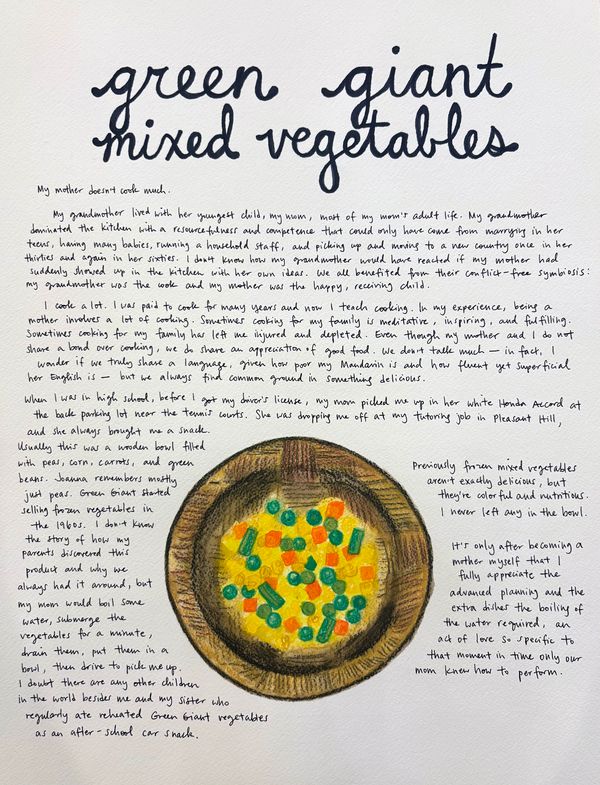 green giant
mixed vegetables
My mother doesn't cook much.
My grandmother lived with her youngest child, my mom, most of my mom's adult life. My grandmother
dominated the kitchen with a resourcefulness and competence that could only have come from marrying in her
teens, having many babies, running a household staff, and picking up and moving to a new country once in her
thirties and again in her sixties. I don't know how my grandmother would have reacted if my mother had
suddenly showed up in the kitchen with her own ideas. We all benefited from their conflict-free symbiosis:
my grandmother was the cook and my mother was the happy, receiving child.
I cook a lot. I was paid to cook for many years and now I teach cooking. In my experience, being a
mother involves a lot of cooking. Sometimes cooking for my family is meditative, inspiring, and fulfilling.
Sometimes cooking for my family has left me injured and depleted. Even though my mother and I do not
share a bond over cooking, we do share an appreciation of good food. We don't talk much — in fact, I
wonder if we truly share a language, given how poor my Mandarin is and how fluent yet superficial
her English is — but we always find common ground in something delicious.
When I was in high school, before I got my driver's license, my mom picked me up in her white Honda Accord at
the back parking lot near the tennis courts. She was dropping me off at my tutoring job in Pleasant Hill,
and she always brought me a snack.
Usually this was a wooden bowl filled
with peas, corn, carrots, and green
beans. Joanna remembers mostly
just peas. Green Giant started
selling frozen vegetables in
the 1960s. I don't know
the story of how my
parents discovered this
product and why we
always had it around, but
my mom would boil some
water, submerge the
vegetables for a minute,
drain them, put them in a
bowl, then drive to pick me up.
I doubt there are any other children
in the world besides me and my sister who
regularly ate reheated Green Giant vegetables
as an after-school car snack.
Previously frozen mixed vegetables
aren't exactly delicious, but
they're colorful and nutritious.
I never left any in the bowl.
It's only after becoming a
mother myself that I
fully appreciate the
advanced planning and the
extra dishes the boiling of
the water required, an
act of love so specific to
that moment in time only our
mom knew how to perform.